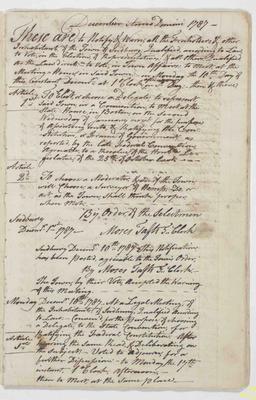 December Anno Domini 1787
These are to Notify & Warn all the Freeholders & other
Inhabitants of the Town of Sudbury Qualified according to Law
to Vote in the Election of Representatives, & all others Qualified
as the Law directs to Vote in Town Affairs, to Meet at the
Meeting House in said Town on Monday the 10th Day of
this Instant Decembr at 1 Clock
Article 1st To Elect & choose a Delegate to represent
said Town in a Convention to Meet at the
State House in Boston on the Second
Wednesday of January next for the purpose
of assenting unto & Ratifying the Constitution
or Frame of Government
reported by the Late Federal Convention
agreeable to a Resolve of the
of the 25th of October last
Article 2d To choose a Moderator & see if the Town
will Choose a Surveyor of & or
act as the Town shall think proper
By Order of the Selectmen
Sudbury
Decemr 1st 1787 Moses Taft T. Clerk
Sudbury Decemr 10th 1787 This Notification
has been Posted, agreeable to the Town Order,
By Moses Taft T. Clerk
The Town, by their Vote, Accepted the Warning
of this Meeting
Monday Decemr 10th 1787. At a Legal Meeting of
the Inhabitants of Sudbury, Qualified According
to Law Conven'd for the Purpose of choosing
a Delegate to the State Convention, for
Ratifying the Federal Constitution After
hearing the Same Read & Deliberating on
the Subject Voted to adjourn for a
further to Monday the 17th
instant 1 Clock afternoon
then to Meet at the Same Place